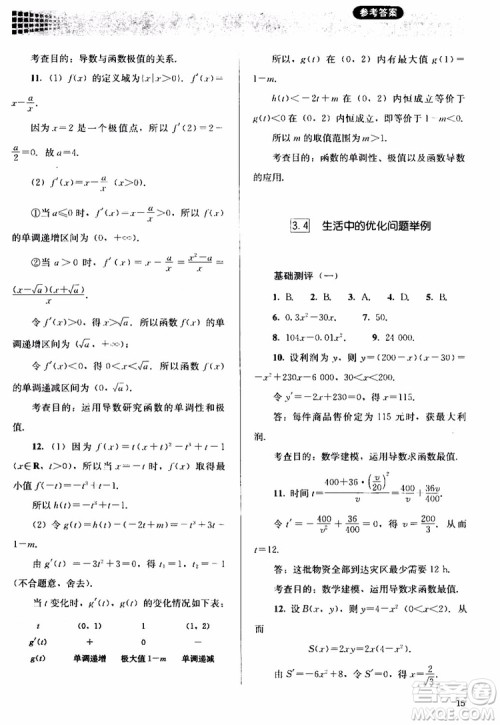 参考答案
考查目的：导数与函数极值的关系.
11. (1) f(x)的定义域为{x|x>0}，f′(x)=
x−a/x.
因为 x=2 是一个极值点，所以 f′(2)=2−
a/2=0. 故 a=4.
(2) f′(x)=x−a/x.
①当 a≤0 时，f′(x)>0，所以 f(x)的
单调递增区间为(0，+∞).
②当 a>0 时，f′(x)=x−a/x=(x²−a)/x=
(x−√a)(x+√a)/x.
令 f′(x)>0，则 x>√a，所以 f(x)的单
调递增区间为(√a，+∞)；
令 f′(x)<0，则 0<x<√a，所以 f(x)
的单调递减区间为(0，√a).
考查目的：运用导数研究函数的单调性和极
值.
12. (1) 因为 f(x)=t(x+t)²−t³+t−1
(x∈R，t>0)，所以 x=−t 时，f(x)取得最小
值 f(−t)=−t³+t−1.
所以 h(t)=−t³+t−1.
(2) 令 g(t)=h(t)−(−2t+m)=−t³+
3t−1−m.
由 g′(t)=−3t²+3=0，得 t=1 或 t=−1
(不合题意，舍去).
当 t 变化时，g′(t)、g(t)的变化情况如下表：
t (0，1) 1 (1，2)
g′(t) + 0 −
g(t) 单调递增 极大值 1−m 单调递减
所以，g(t)在(0，2)内有最大值 g(1)=
1−m.
h(t)<−2t+m 在(0，2)内恒成立等价于
g(t)<0 在(0，2)内恒成立，即 1−m<0.
所以 m 的取值范围为 m>1.
考查目的：函数的单调性、极值以及函数导数
的应用.
3.4 生活中的优化问题举例
基础测评（一）
1. B. 2. B. 3. A. 4. D. 5. D.
6. 0.3x²−x. 7. 50.
8. 104x−0.01x². 9. 24 000.
10. 设利润为 y，则 y=(200−x)(x−30)=
−x²+230x−6 000(30≤x≤200).
令 y′=−2x+230=0，得 x=115.
答：每件商品售价定为 115 元时，可获最大利
润.
考查目的：数学建模，运用导数求函数最值.
11. 时间 t=(400+36·(v/20)²)/v=400/v+36v/400.
令 t′=−400/v²+36/400=0，得 v=200/3，从而
t=12.
答：这批物资全部到达灾区最少需要 12 h.
考查目的：数学建模，运用导数求函数最值.
12. 设 B(x，4−x²)(0<x<2)，则 A(−x，4−x²).从
而
S(x)=2x(4−x²)=−2x³+8x.
由 S′=−6x²+8，令 S′=0，得 x=2/√3.
15